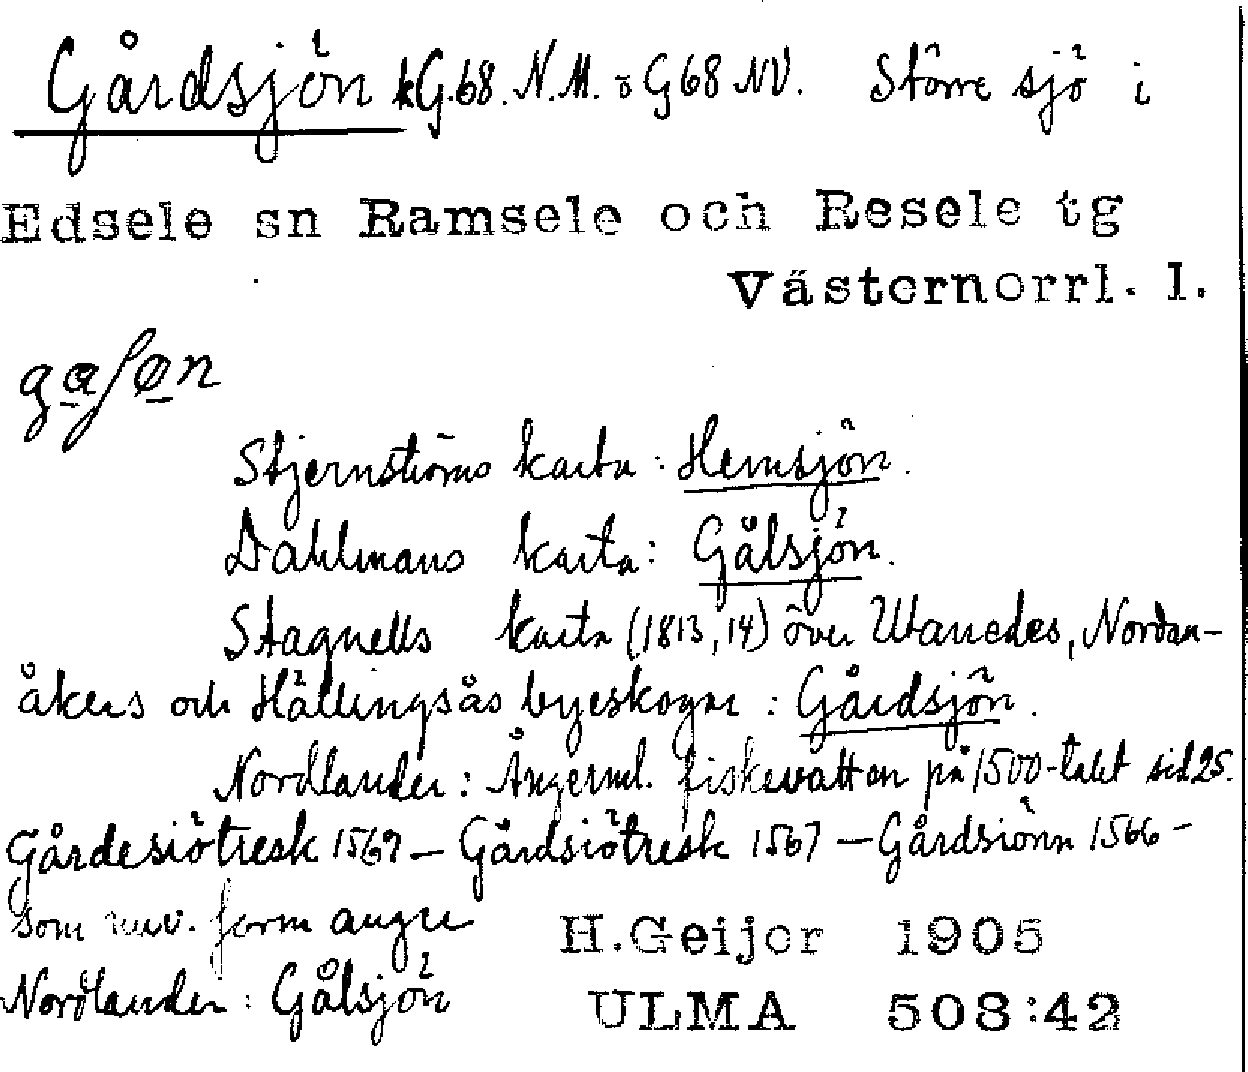 Gårdsjön kG.68.N.M. o G68 NV. Större sjö i
Edsele sn Ramsele och Resele tg
Västernorrl. l.
Stjernströms karta: Hemsjön.
Dahlmans karta: Gålsjön.
Stagnells karta (1813, 14) över Utanedes, Nordan-
åkers och Hällingsås byeskogar: Gårdsjön.
Nordlander: Ångerml. fiskevatten på 1500-talet sid 25.
Gårdesiötresk 1569 – Gårdsiötresk 1567 – Gårdsiönn 1566 –
som nuv. form anger
Nordlander: Gålsjön
H.Geijer 1905
ULMA 508:42